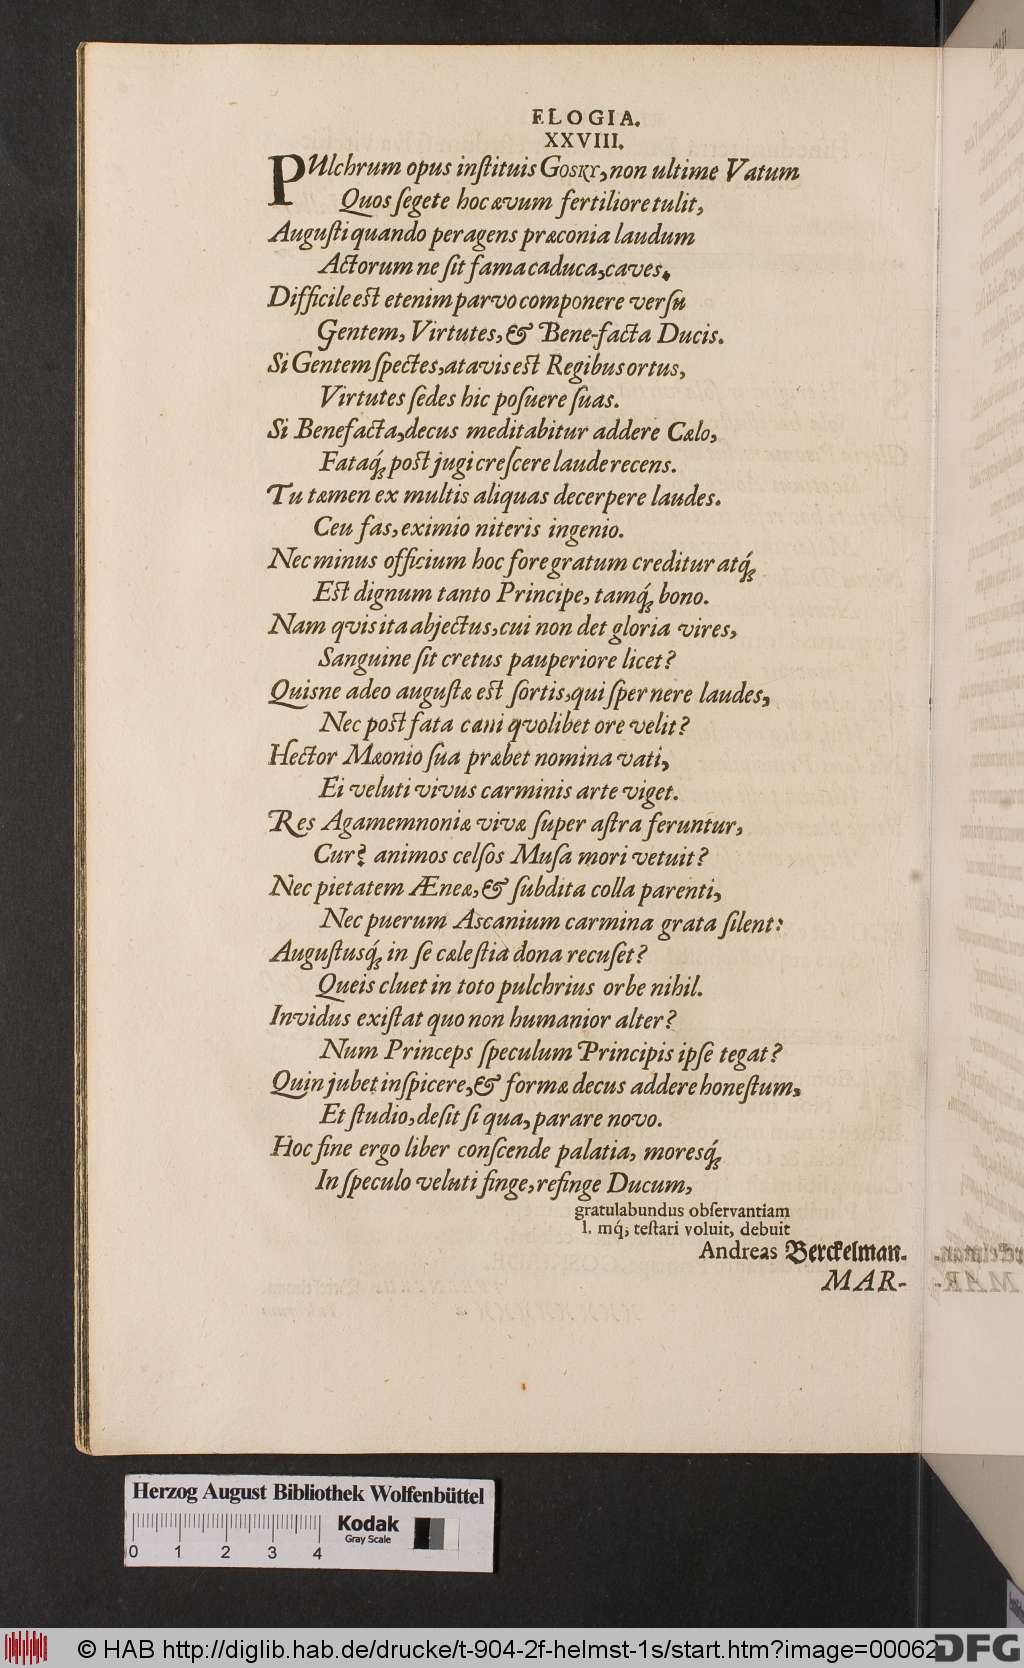 ELOGIA.
XXVIII.
PUlchrum opus inſtituis GOSKY, non ultime Vatum
Quos ſegete hoc ævum fertiliore tulit,
Auguſti quando peragens præconia laudum
Actorum ne ſit fama caduca, caves.
Difficile eſt etenim parvo componere verſu
Gentem, Virtutes, & Bene-facta Ducis.
Si Gentem ſpectes, atavis eſt Regibus ortus,
Virtutes ſedes hic poſuere ſuas.
Si Benefacta, decus meditabitur addere Cælo,
Fataq́; poſt jugi creſcere laude recens.
Tu tamen ex multis aliquas decerpere laudes.
Ceu fas, eximio niteris ingenio.
Nec minus officium hoc fore gratum creditur atq́;
Eſt dignum tanto Principe, tamq́; bono.
Nam qvis ita abjectus, cui non det gloria vires,
Sanguine ſit cretus pauperiore licet?
Quisne adeo auguſtæ eſt ſortis, qui ſpernere laudes,
Nec poſt fata cani qvolibet ore velit?
Hector Mæonio ſua præbet nomina vati,
Ei veluti vivus carminis arte viget.
Res Agamemnoniæ vivæ ſuper aſtra feruntur,
Cur? animos celſos Muſa mori vetuit?
Nec pietatem Æneæ, & ſubdita colla parenti,
Nec puerum Ascanium carmina grata ſilent:
Auguſtusq́; in ſe cæleſtia dona recuſet?
Queis cluet in toto pulchrius orbe nihil.
Invidus exiſtat quo non humanior alter?
Num Princeps ſpeculum Principis ipſe tegat?
Quin jubet inſpicere, & formæ decus addere honeſtum,
Et ſtudio, deſit ſi qua, parare novo.
Hoc fine ergo liber conſcende palatia, moresq́;
In ſpeculo veluti finge, refinge Ducum,
gratulabundus obſervantiam
l. mq́; teſtari voluit, debuit
Andreas Berckelman.
MAR-
Herzog August Bibliothek Wolfenbüttel
Kodak
Gray Scale
0 1 2 3 4
© HAB http://diglib.hab.de/drucke/t-904-2f-helmst-1s/start.htm?image=00062
DFG